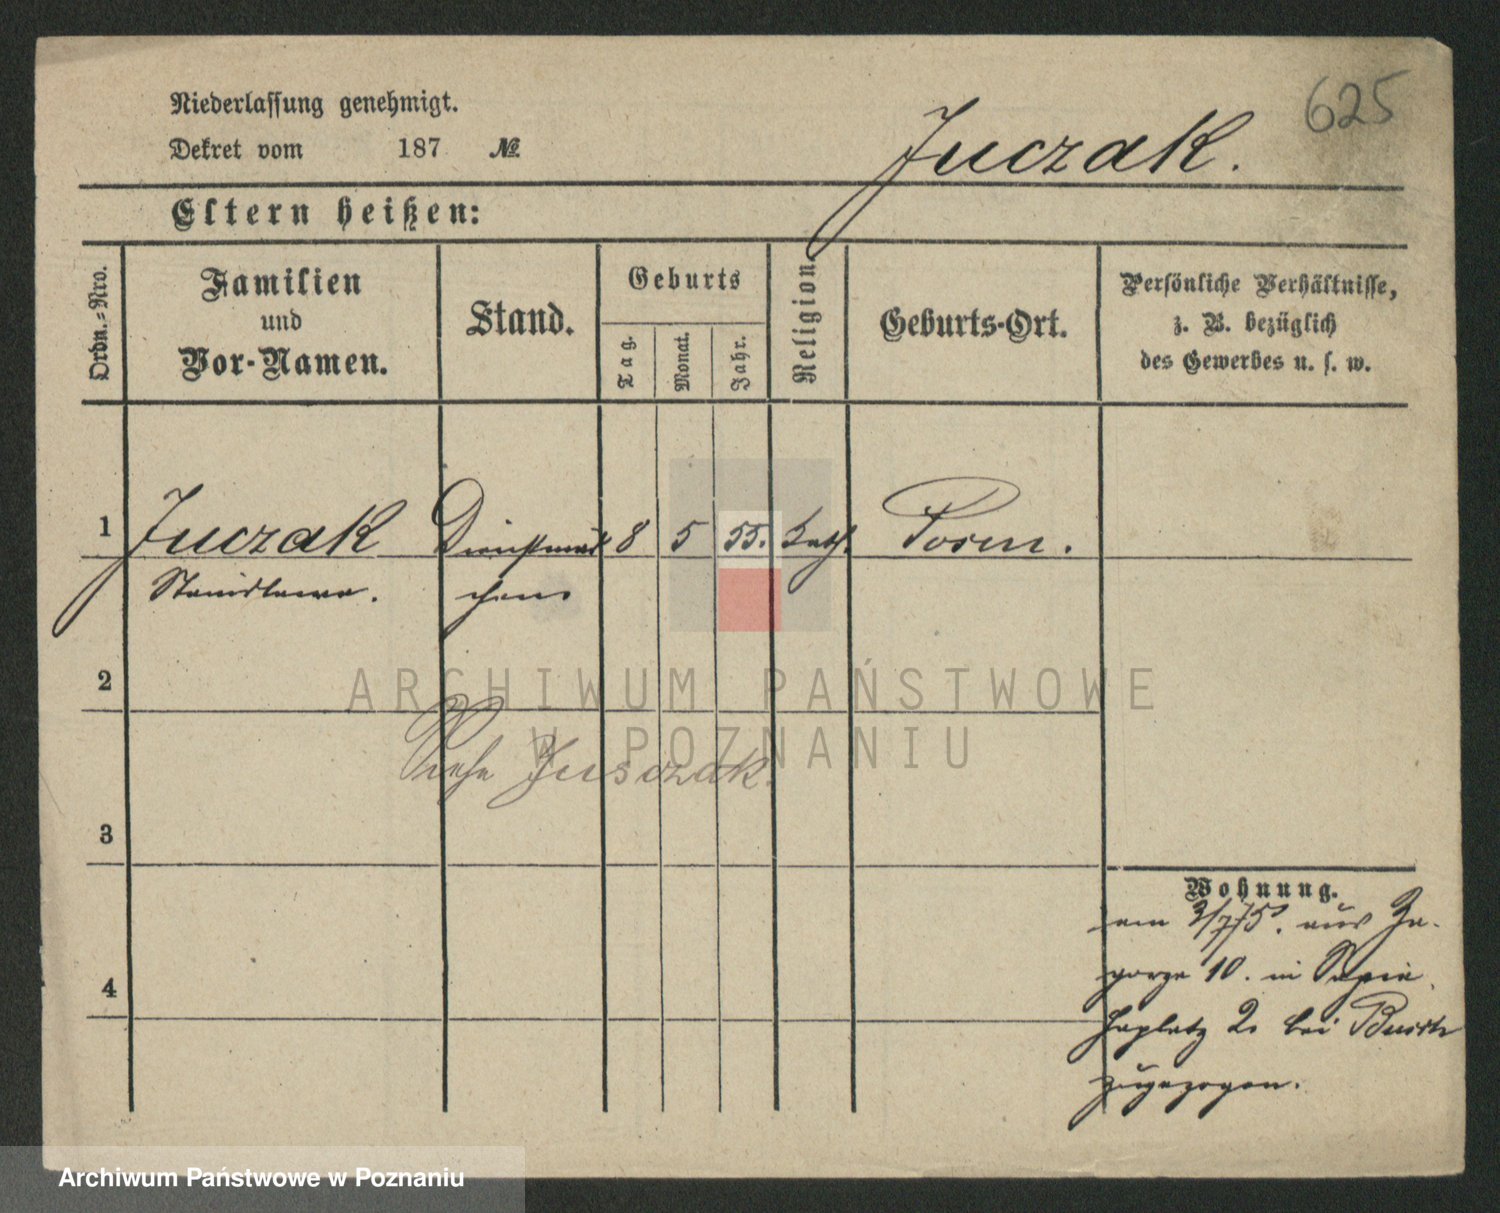 625
Niederlassung genehmigt.
Juczak.
Dekret vom 187 №
Eltern heißen:
Ordn.-Nro.
Familien
und
Vor-Namen.
Stand.
Geburts
Tag.
Monat.
Jahr.
Religion
Geburts-Ort.
Persönliche Verhältnisse,
z. B. bezüglich
des Gewerbes u. s. w.
1 Juczak Dienstmäd 8 5 55. kath. Posen.
Stanislawa. chen
2
ARCHIWUM PAŃSTWOWE
W POZNANIU
Siehe Jusczak.
3
Wohnung.
am 3/7 75. aus Za-
gorze 10. in Sapie
haplatz 2. bei Busch
zugezogen.
4
Archiwum Państwowe w Poznaniu